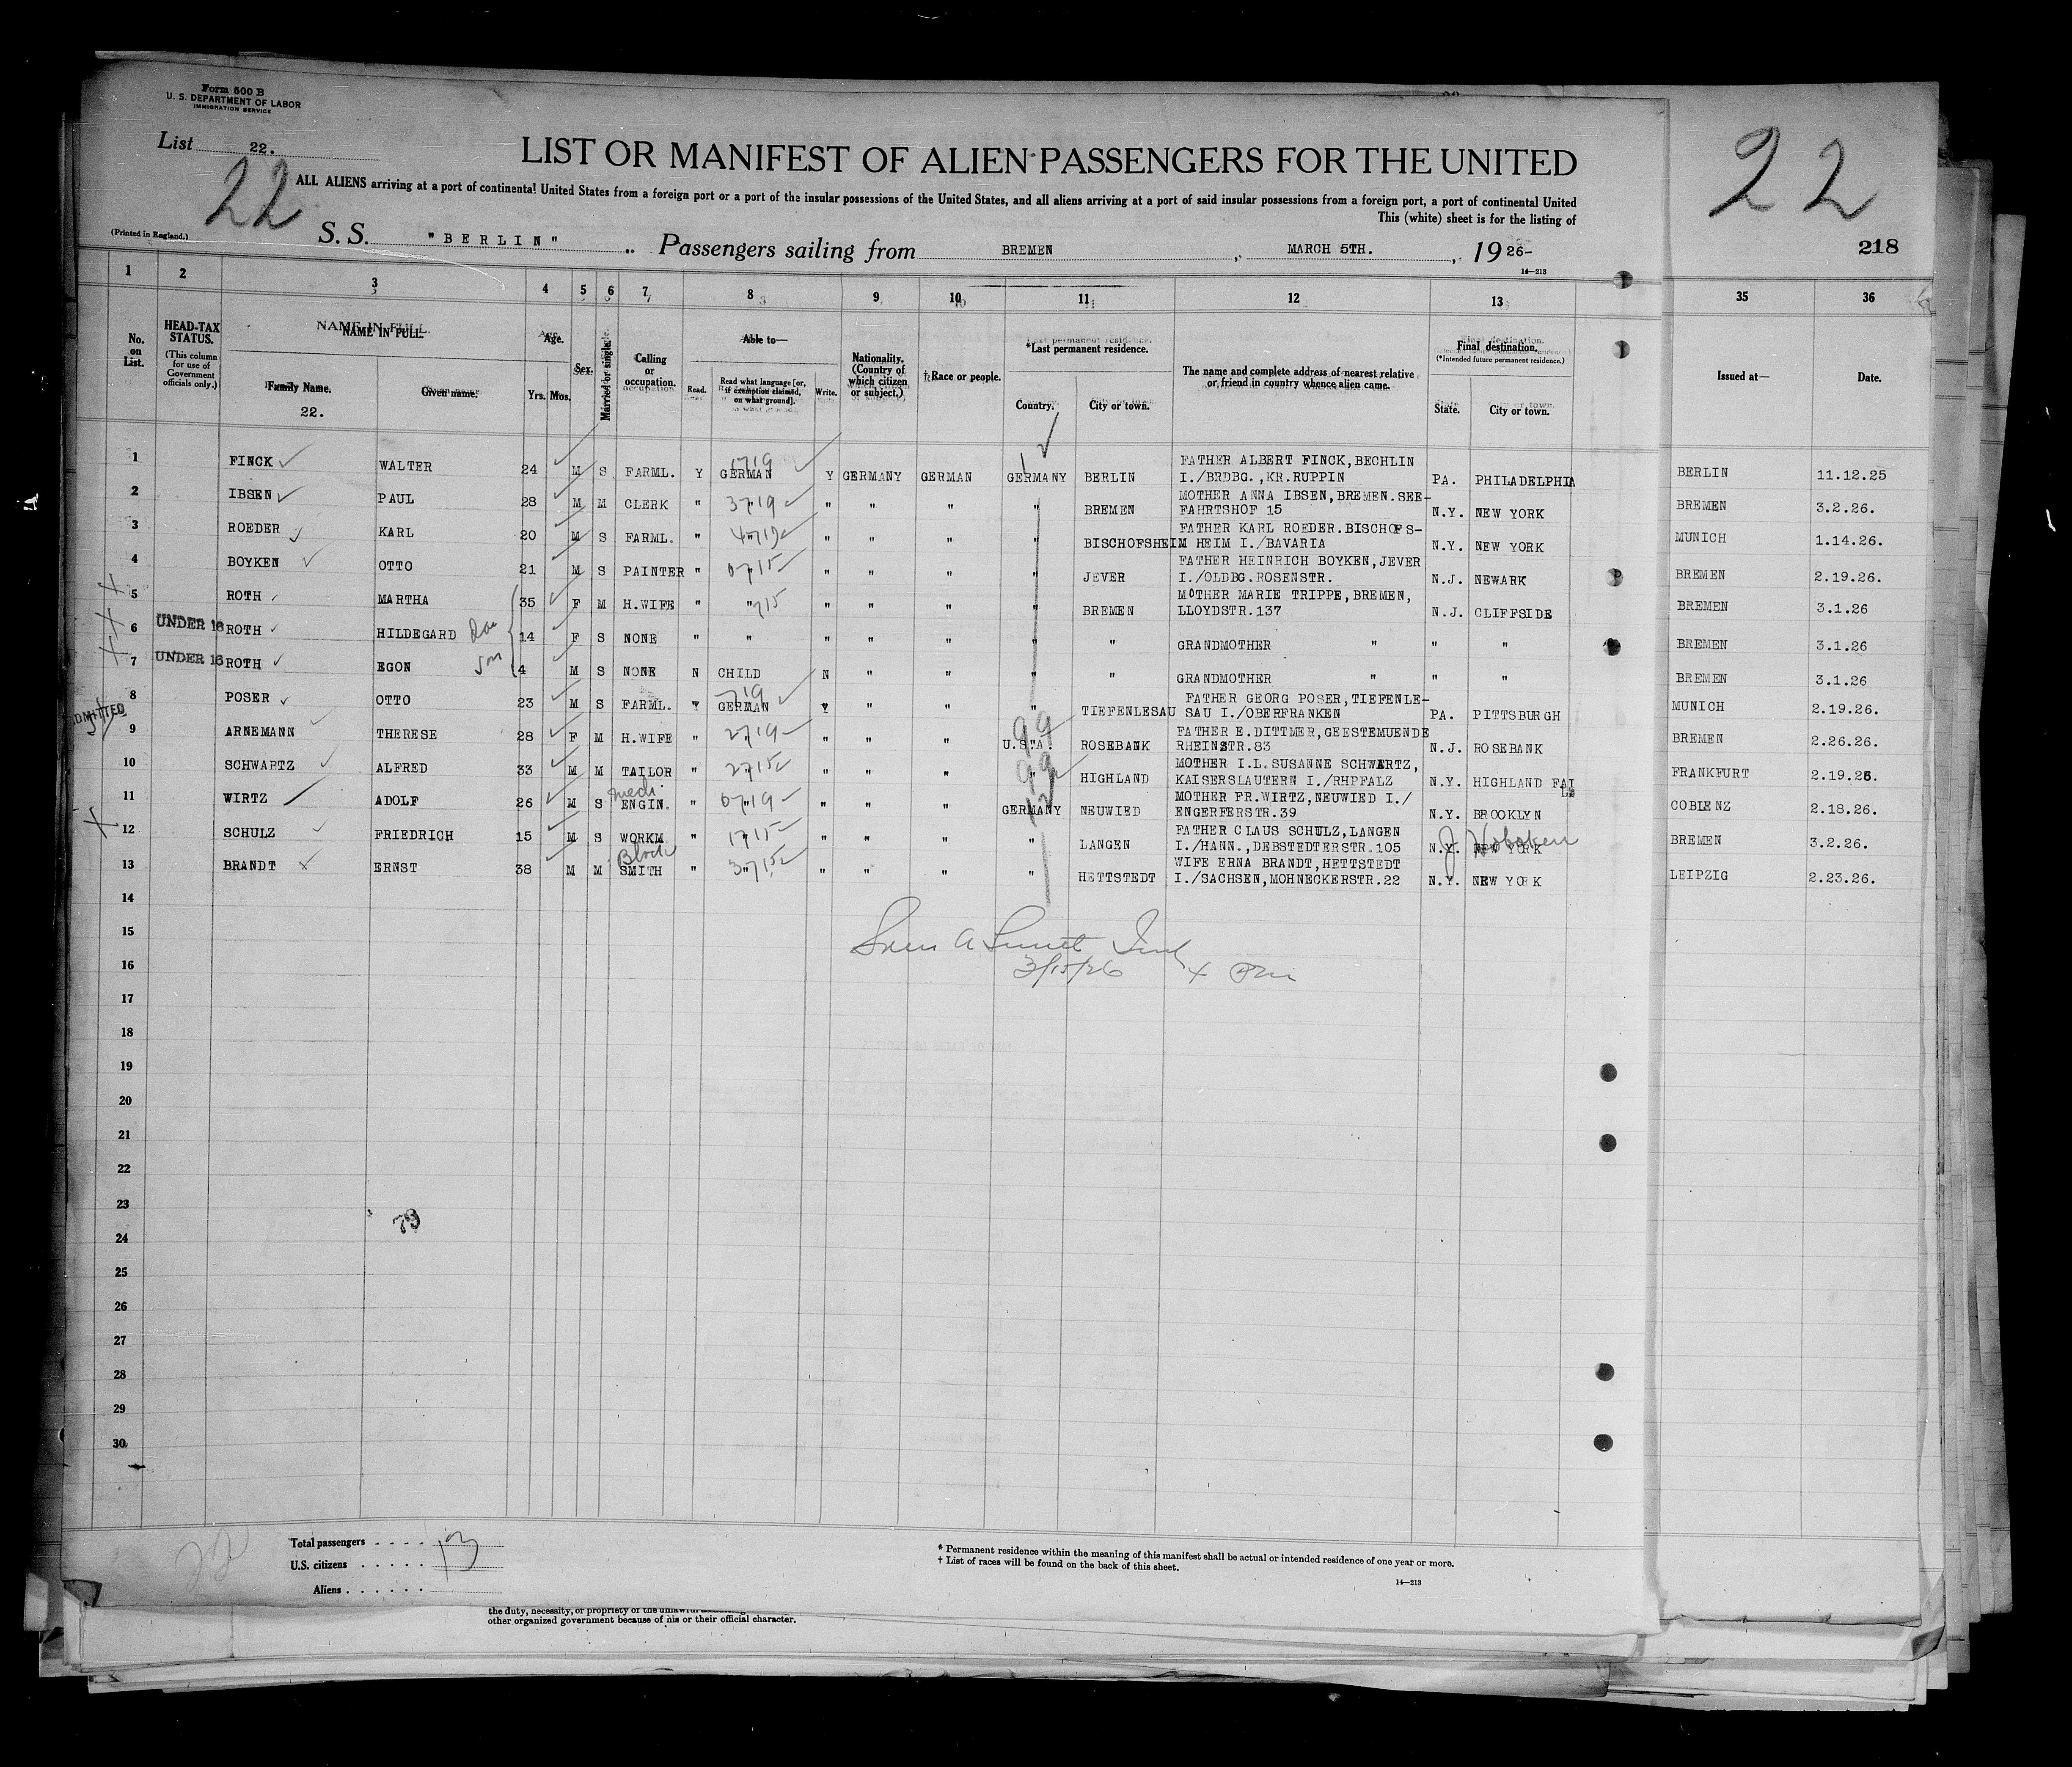 Form 500 B
U. S. DEPARTMENT OF LABOR
IMMIGRATION SERVICE
List 22.
22
LIST OR MANIFEST OF ALIEN PASSENGERS FOR THE UNITED
ALL ALIENS arriving at a port of continental United States from a foreign port or a port of the insular possessions of the United States, and all aliens arriving at a port of said insular possessions from a foreign port, a port of continental United
This (white) sheet is for the listing of
(Printed in England.)
S. S. "BERLIN" Passengers sailing from BREMEN, MARCH 5TH., 1926-
14—213
22
218
1 2 3 4 5 6 7 8 9 10 11 12 13 35 36
No. on List.
HEAD-TAX STATUS.
(This column for use of Government officials only.)
NAME IN FULL.
Family Name. Given name.
22.
Age.
Yrs. Mos.
Sex.
Married or single.
Calling or occupation.
Able to—
Read. Read what language [or, if exemption claimed, on what ground]. Write.
Nationality. (Country of which citizen or subject.)
†Race or people.
*Last permanent residence.
Country. City or town.
The name and complete address of nearest relative or friend in country whence alien came.
Final destination.
(*Intended future permanent residence.)
State. City or town.
Issued at— Date.
1 FINCK WALTER 24 M S FARML. Y GERMAN Y GERMANY GERMAN GERMANY BERLIN FATHER ALBERT FINCK,BECHLIN I./BRDBG.,KR.RUPPIN PA. PHILADELPHIA BERLIN 11.12.25
2 IBSEN PAUL 28 M M CLERK " 3719 " " " " BREMEN MOTHER ANNA IBSEN,BREMEN.SEE-FAHRTSHOF 15 N.Y. NEW YORK BREMEN 3.2.26.
3 ROEDER KARL 20 M S FARML. " " " " " " BISCHOFSHEIM FATHER KARL ROEDER.BISCHOFS-HEIM I./BAVARIA N.Y. NEW YORK MUNICH 1.14.26.
4 BOYKEN OTTO 21 M S PAINTER " " " " " " JEVER FATHER HEINRICH BOYKEN,JEVER I./OLDBG.ROSENSTR. N.J. NEWARK BREMEN 2.19.26.
5 ROTH MARTHA 35 F M H.WIFE " " 715 " " " " BREMEN MOTHER MARIE TRIPPE,BREMEN, LLOYDSTR.137 N.J. CLIFFSIDE BREMEN 3.1.26
6 UNDER 16 ROTH HILDEGARD 14 F S NONE " " " " " " " GRANDMOTHER " " " BREMEN 3.1.26
7 UNDER 16 ROTH EGON son 4 M S NONE N CHILD N " " " " GRANDMOTHER " " " BREMEN 3.1.26
8 POSER OTTO 23 M S FARML. Y GERMAN 719 Y " " " TIEFENLESAU FATHER GEORG POSER,TIEFENLE-SAU I./OBERFRANKEN PA. PITTSBURGH MUNICH 2.19.26.
ADMITTED
9 ARNEMANN THERESE 28 F M H.WIFE " 2719 " " " U.S.A. 99 ROSEBANK FATHER E.DITTMER,GEESTEMUENDE RHEINSTR.83 N.J. ROSEBANK BREMEN 2.26.26.
10 SCHWARTZ ALFRED 33 M M TAILOR " 2715 " " " " 99 HIGHLAND MOTHER I.L.SUSANNE SCHWARTZ, KAISERSLAUTERN I./RHPFALZ N.Y. HIGHLAND FALLS FRANKFURT 2.19.26.
11 WIRTZ ADOLF 26 M S mech ENGIN. " 0719 " " " GERMANY 12 NEUWIED MOTHER FR.WIRTZ,NEUWIED I./ ENGERFERSTR.39 N.Y. BROOKLYN COBLENZ 2.18.26.
12 SCHULZ FRIEDRICH 15 M S WORKM. " 1715 " " " " LANGEN FATHER CLAUS SCHULZ,LANGEN I./HANN.,DEBSTEDTERSTR.105 N.Y. NEW YORK J Hoboken BREMEN 3.2.26.
13 BRANDT ERNST 38 M M SMITH " 3715 " " " " HETTSTEDT WIFE ERNA BRANDT,HETTSTEDT I./SACHSEN,MOHNECKERSTR.22 N.Y. NEW YORK LEIPZIG 2.23.26.
14
15
3/15/26
16
17
18
19
20
21
22
23
73
24
25
26
27
28
29
30
Total passengers 13
U.S. citizens
Aliens
* Permanent residence within the meaning of this manifest shall be actual or intended residence of one year or more.
† List of races will be found on the back of this sheet.
14—213
the duty, necessity, or propriety of the
other organized government because of his or their official character.